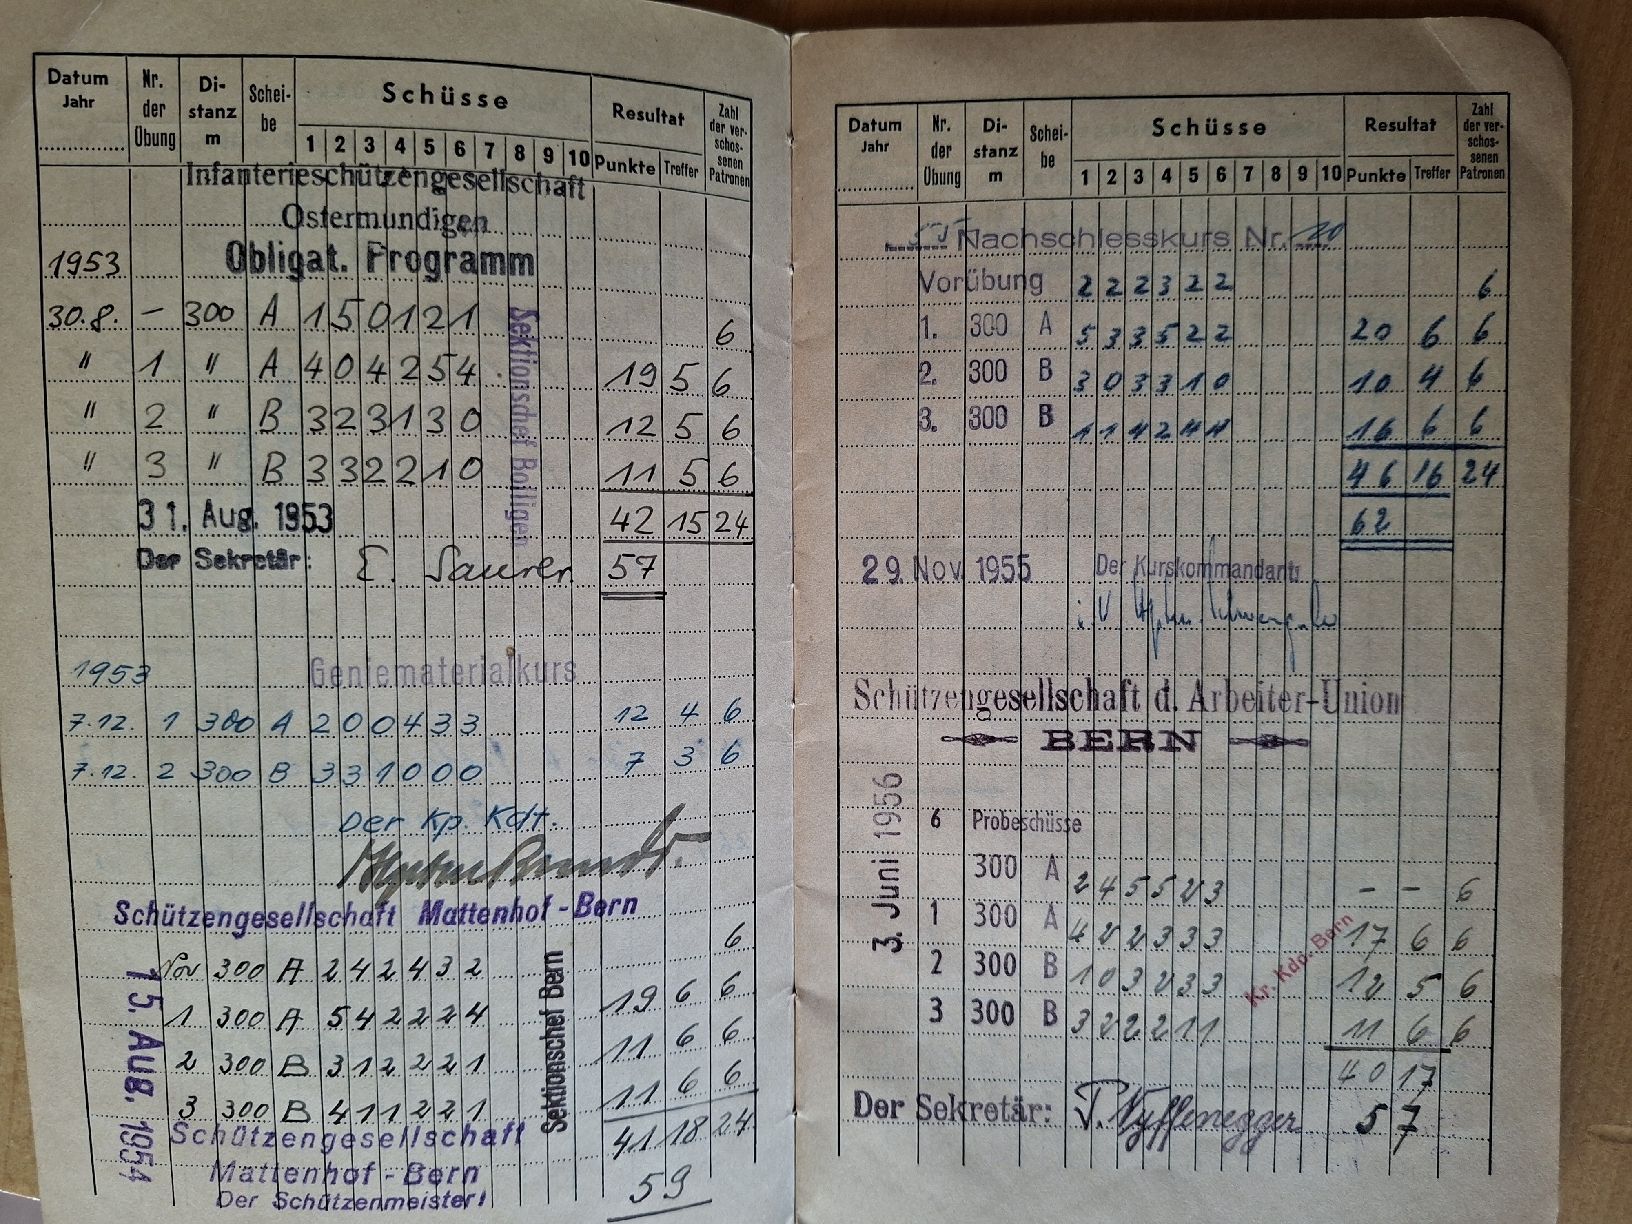 Datum Jahr Nr. der Übung Di-stanz m Schei-be Schüsse Resultat Zahl der ver-schos-senen Patronen
1 2 3 4 5 6 7 8 9 10 Punkte Treffer
Infanterieschützengesellschaft
Ostermundigen
1953 Obligat. Programm
30.8. – 300 A 1 5 0 1 2 1 6
" 1 " A 4 0 4 2 5 4 19 5 6
" 2 " B 3 2 3 1 3 0 12 5 6
" 3 " B 3 3 2 2 1 0 11 5 6
Sektionschef Bolligen
31. Aug. 1953 42 15 24
Der Sekretär: E. Saurer 57
1953 Geniematerialkurs
7.12. 1 300 A 2 0 0 4 3 3 12 4 6
7.12. 2 300 B 3 3 1 0 0 0 7 3 6
Der Kp. Kdt.
Schützengesellschaft Mattenhof-Bern
Vor 300 A 2 4 2 4 3 2 6
1 300 A 5 4 2 2 2 4 19 6 6
2 300 B 3 1 2 2 2 1 11 6 6
3 300 B 4 1 1 2 2 1 11 6 6
15. Aug. 1954
Sektionschef Bern
41 18 24
Schützengesellschaft
Mattenhof-Bern
Der Schützenmeister:
59
Datum Jahr Nr. der Übung Di-stanz m Schei-be Schüsse Resultat Zahl der ver-schos-senen Patronen
1 2 3 4 5 6 7 8 9 10 Punkte Treffer
55 Nachschiesskurs Nr. 20
Vorübung 2 2 2 3 2 2 6
1. 300 A 5 3 3 5 2 2 20 6 6
2. 300 B 3 0 3 3 1 0 10 4 6
3. 300 B 1 1 4 2 4 4 16 6 6
46 16 24
62
29. Nov. 1955 Der Kurskommandant:
i.V.
Schützengesellschaft d. Arbeiter-Union
BERN
3. Juni 1956
6 Probeschüsse
300 A 2 4 5 5 2 3 – – 6
1 300 A 4 2 2 3 3 3 17 6 6
2 300 B 1 0 3 2 3 3 12 5 6
3 300 B 3 2 2 2 1 1 11 6 6
Kr. Kdo. Bern
40 17
Der Sekretär: P. Nyffenegger 57